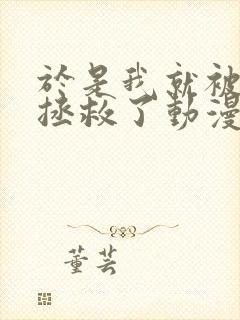 於是我就被
拯救了動漫
董芸